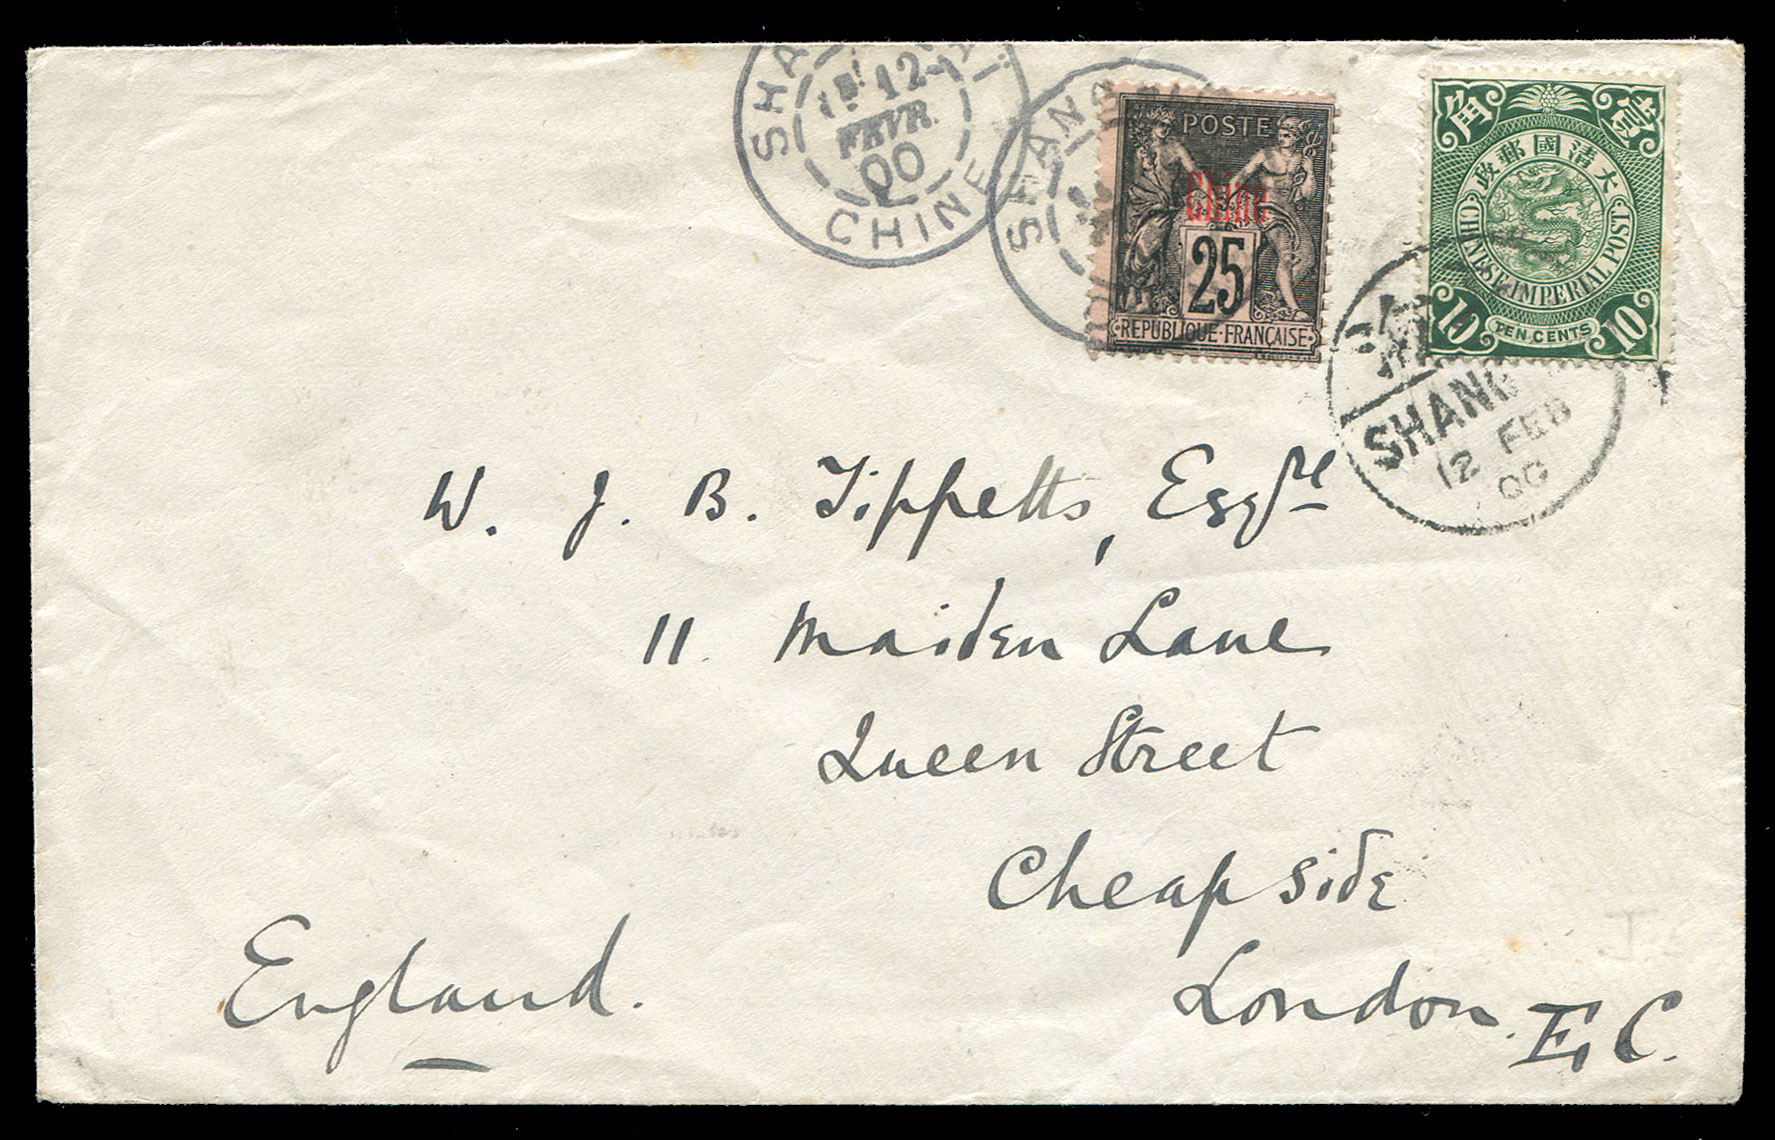 SHA
12
FEVR.
00
CHINE
SHANG
POSTE
Chine
25
REPUBLIQUE·FRANÇAISE
角 貳
大清國郵政
CHINESE IMPERIAL POST
10 TEN CENTS 10
SHANG
12 FEB
00
W. J. B. Tippetts, Esqre
11. Maiden Lane
Queen Street
Cheapside
London. E.C.
England.